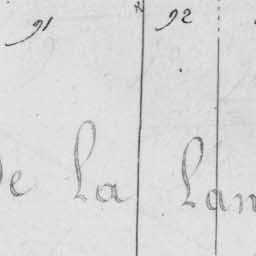 91 92
de la Lan